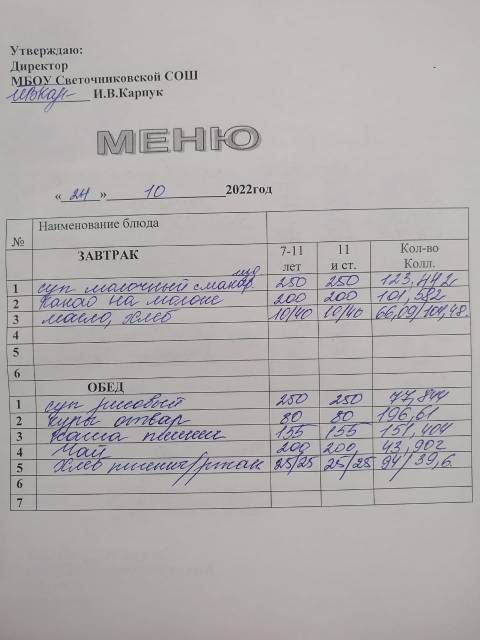 Утверждаю:
Директор
МБОУ Светочниковской СОШ
И.В.Карпук
МЕНЮ
« 24 » 10 2022год
№ Наименование блюда
ЗАВТРАК 7-11 лет 11 и ст. Кол-во Колл.
1 суп молочный макар 250 250 123,442
2 Какао на молоке 200 200 101,582
3 масло, хлеб 10/40 10/40 66,09/104,48
4
5
6
ОБЕД
1 суп рисовый 250 250 77,844
2 куры отвар 80 80 196,61
3 каша пшенич 155 155 151,404
4 Чай 200 200 43,902
5 Хлеб пшенич/ржан 25/25 25/25 94/39,6
6
7